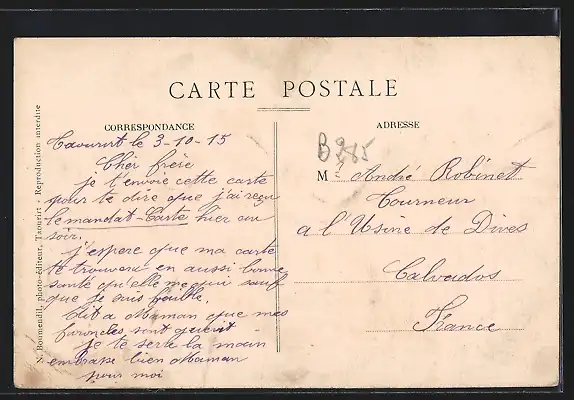 CARTE POSTALE
CORRESPONDANCE
Taourirt le 3-10-15
Cher frère
je t'envoie cette carte
pour te dire que j'ai reçu
le mandat-Carte hier au
soir.
j'espere que ma carte
te trouvera en aussi bonne
santé qu'elle me qui sauf
que je suis faible.
Dit a Maman que mes
furoncles sont guerit
je te serre la main
embrasse bien Maman
pour moi
ADRESSE
B 985
M André Robinet
Tourneur
a l'Usine de Dives
Calvados
France
N. Boumendil, photo-éditeur, Taourirt - Reproduction interdite